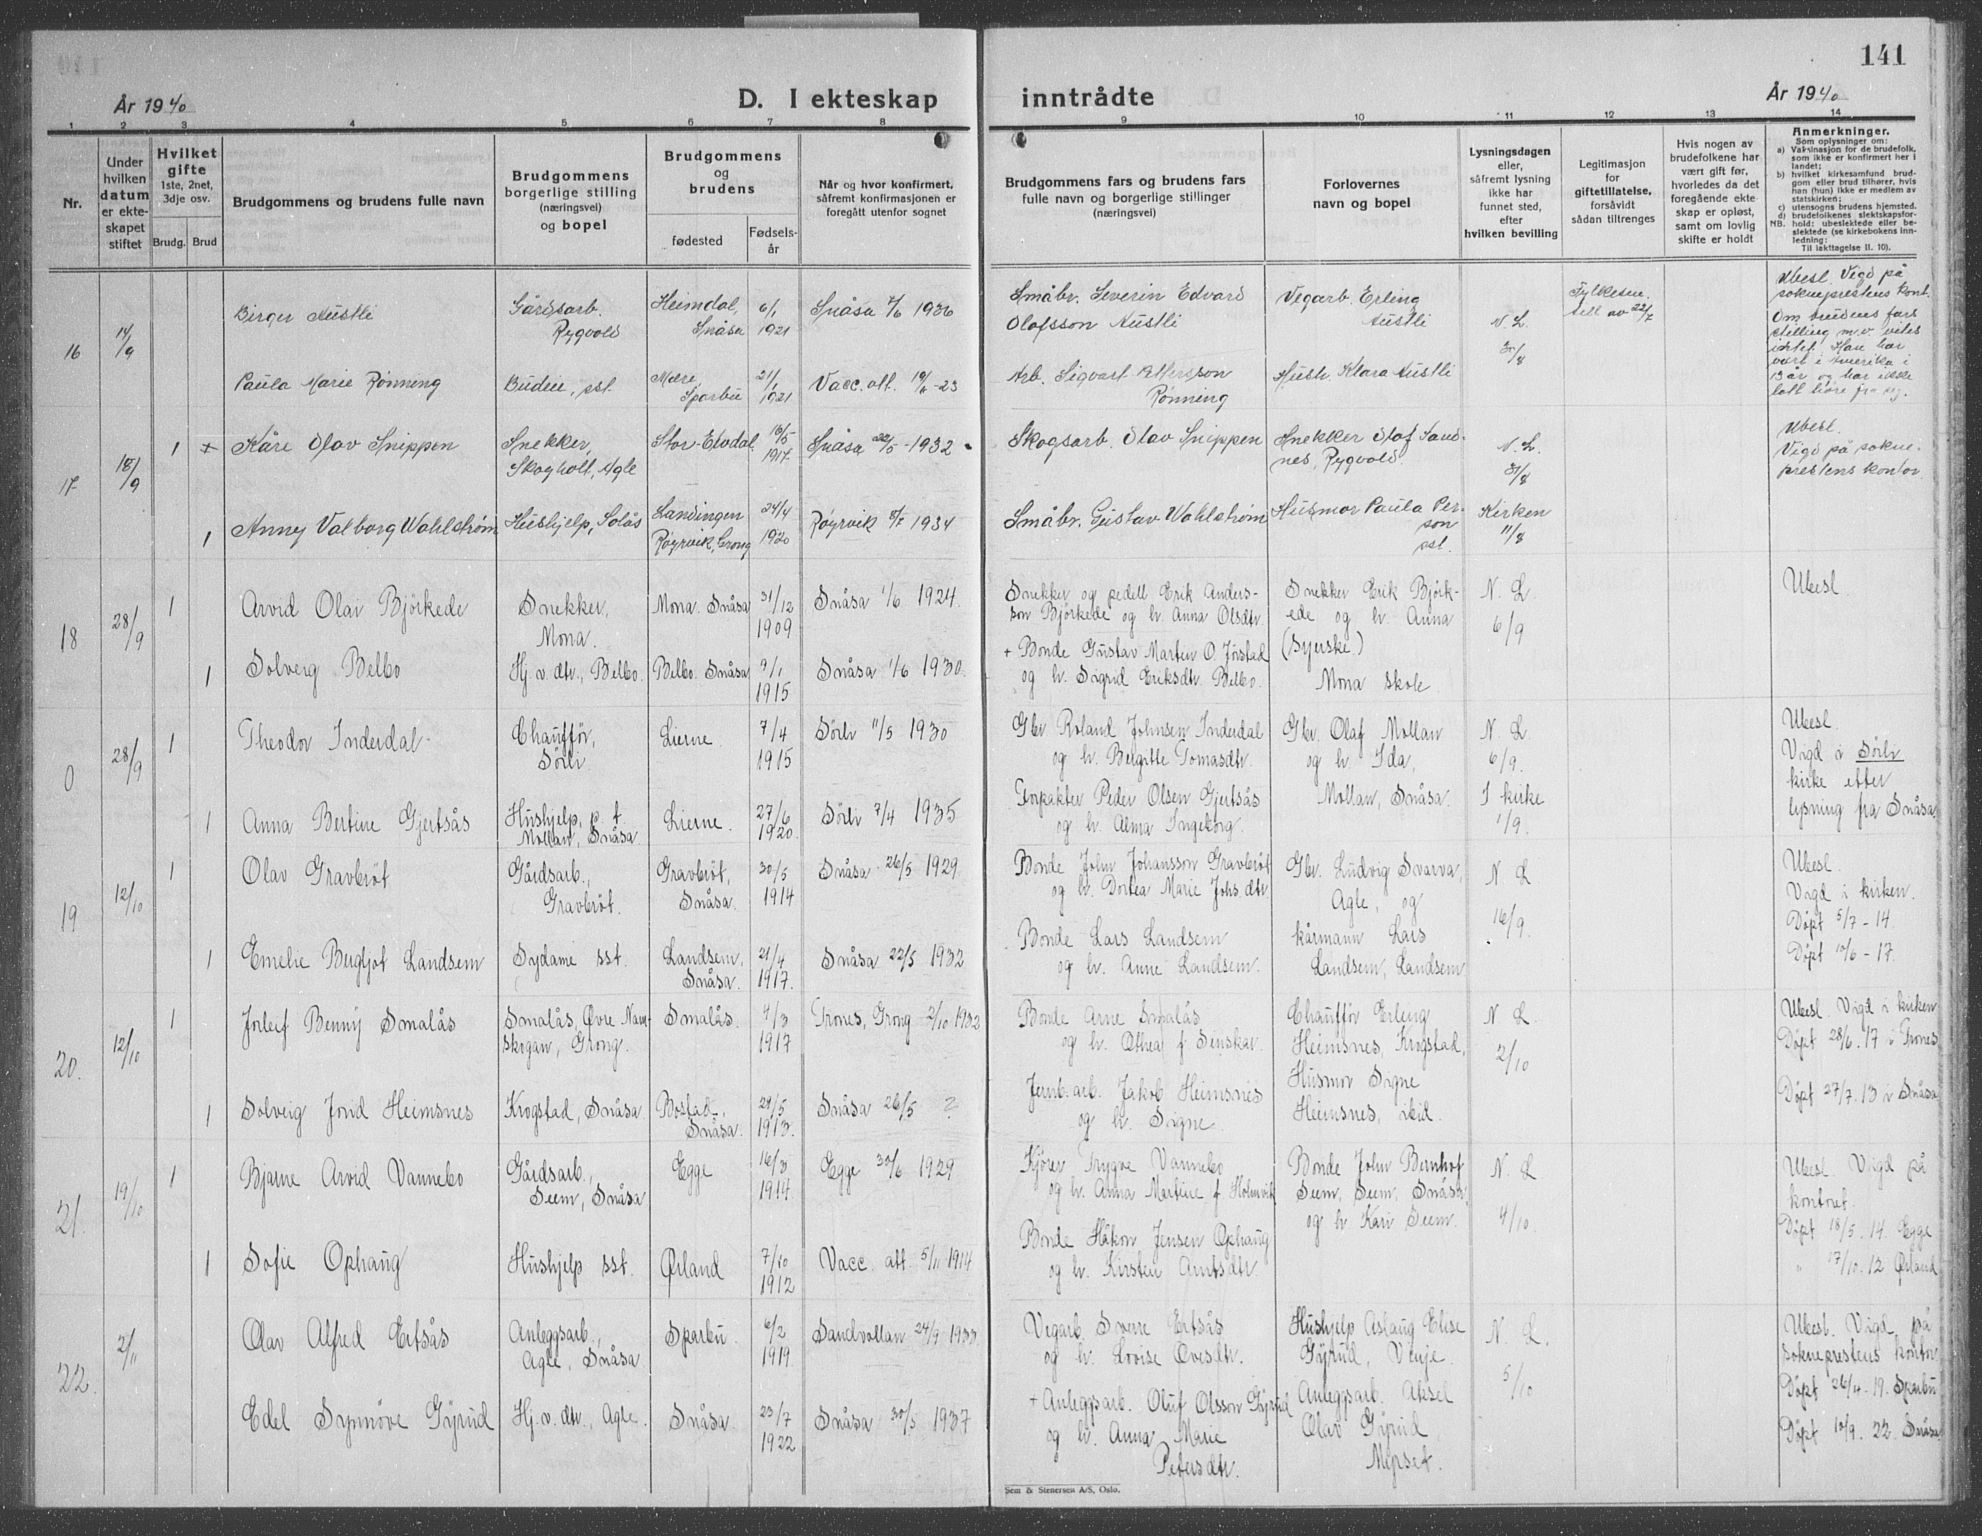 141
År 1940
D. I ekteskap
inntrådte
År 1940
1 2 3 4 5 6 7 8 9 10 11 12 13 14
Nr.
Under
hvilken
datum
er ekte-
skapet
stiftet
Hvilket
gifte
1ste, 2net,
3dje osv.
Brudg. Brud
Brudgommens og brudens fulle navn
Brudgommens
borgerlige stilling
(næringsvei)
og bopel
Brudgommens
og
brudens
fødested
Fødsels-
år
Når og hvor konfirmert,
såfremt konfirmasjonen er
foregått utenfor sognet
Brudgommens fars og brudens fars
fulle navn og borgerlige stillinger
(næringsvei)
Forlovernes
navn og bopel
Lysningsdagen
eller,
såfremt lysning
ikke har
funnet sted,
efter
hvilken bevilling
Legitimasjon
for
giftetillatelse,
forsåvidt
sådan tiltrenges
Hvis nogen av
brudefolkene har
vært gift før,
hvorledes da det
foregående ekte-
skap er opløst,
samt om lovlig
skifte er holdt
Anmerkninger.
Som oplysninger om:
a) Vaksinasjon for de brudefolk,
som ikke er konfirmert her i
landet;
b) hvilket kirkesamfund brud-
gom eller brud tilhører, hvis
han (hun) ikke er medlem av
statskirken;
c) utensogns brudens hjemsted.
d) brudefolkenes slektskapsfor-
NB. hold: ubeslektede eller be-
slektede (se kirkebokens inn-
ledning:
Til iakttagelse II. 10).
16
14/9
Birger Austli
Gårdsarb.
Rygvold
Heimdal,
Snåsa
6/1
1921
Snåsa 7/6 1936
Småbr. Severin Edvard
Olafsson Austli
Vegarb. Erling
Austli
N. L.
30/8
Fylkesm.
till av 22/7
Ubesl. Vigd på
sokneprestens kont.
Om brudens fars
stilling m.v. vites
intet. Han har
vært i Amerika i
13 år og har ikke
latt høre fra seg.
Paula Marie Rønning
Budeie, sst.
Mære,
Sparbu
21/1
1921
Vacc. att. 19/6 -23
Arb. Sigvart Rønning
Hustr. Klara Austli
17
15/9
1
Kåre Olav Snippen
Snekker,
Skogholt, Agle
Stor-Elvdal
16/5
1917.
Snåsa 22/5 - 1932
Skogsarb. Olav Snippen
Snekker Olaf Sand-
nes, Rygvold.
N. L.
31/8
Ubesl.
Vigd på sokne-
prestens kontor
1
Anny Valborg Wahlstrøm
Hushjelp, Solås
Landingen
Røyrvik, Grong
24/4
1920
Røyrvik 8/7 1934
Småbr. Gustav Wahlstrøm
Husmor Paula Per-
son
sst.
Kirken
11/8
18
28/9
1
Arvid Olav Bjørkede
Snekker,
Mona.
Mona. Snåsa
31/12
1909
Snåsa 1/6 1924.
Snekker og pedell Erik Anders-
son Bjørkede og h. Anna Olsdtr.
Snekker Erik Bjørk-
ede og h. Anna
(Syerske)
N. L.
6/9
Ubesl.
1
Solveig Belbo
Hj. v. dtr., Belbo.
Belbo. Snåsa
9/1
1915
Snåsa 1/6 1930.
+ Bonde Gustav Marten O. Jørstad
og h. Sigrid Eriksdtr. Belbo.
Mona skole.
0
28/9
1
Theodor Inderdal
Chauffør,
Sørli.
Lierne.
7/4
1915
Sørli 11/5 1930
Gbr. Roland Johnsen Inderdal
og h. Bergitte Tomasdtr.
Gbr. Olaf Mollan
og h. Ida,
N. L.
6/9.
Ubesl.
Vigd i Sørli
kirke efter
lysning fra Snåsa
1
Anna Bertine Gjertsås
Hushjelp, p. t.
Mollan, Snåsa
Lierne.
27/6
1920.
Sørli 7/4 1935
Forpakter Peder Olsen Gjertsås
og h. Alma Ingeborg.
Mollan, Snåsa.
I kirke
1/9.
19
12/10
1
Olav Gravbrøt
Gårdsarb.,
Gravbrøt.
Gravbrøt,
Snåsa.
30/5
1914
Snåsa 26/5 1929
Bonde John Johansson Gravbrøt
og h. Dortea Marie Johs.dtr.
Gbr. Ludvig Svarva,
Agle, og
N. L.
16/9.
Ubesl.
Vigd i kirken.
Døpt 5/7 - 14.
Døpt 10/6 - 17.
1
Emelie Bergljot Landsem
Sydame sst.
Landsem,
Snåsa.
21/4
1917.
Snåsa 22/5 1932
Bonde Lars Landsem
og h. Anne Landsem.
kårmann Lars
Landsem, Landsem
20.
12/10
1
Jorleif Benny Smalås
Smalås, Øvre Nam-
skogan, Grong.
Smalås.
4/3
1917
Trones, Grong 2/10 1932
Bonde Arne Smalås
og h. Othea f. Finskar.
Chauffør Erling
Heimsnes, Krogstad,
N. L.
2/10
Ubesl. Vigd i kirken
Døpt 28/6. 17 i Trones
1
Solveig Jorid Heimsnes
Krogstad, Snåsa.
Bostad,
Snåsa.
29/5
1913.
Snåsa 26/5 ?
Jernb. arb. Jakob Heimsnes
og h. Signe.
Husmor Signe
Heimsnes, ibid.
Døpt 27/7. 13 i Snåsa
21.
19/10
1
Bjarne Arvid Vannebo
Gårdsarb.,
Seem, Snåsa
Egge
16/3
1914.
Egge 30/6 1929
Kjører Trygve Vannebo
og h. Anna Martine f. Holmvik
Bonde John Bernhof
Seem, Seem, Snåsa,
og h. Kari Seem.
N. L.
4/10.
Ubesl. Vigd på
kontoret.
Døpt 18/5. 14. Egge
" 17/10. 12 Ørland
1
Sofie Ophaug
Hushjelp sst.
Ørland
7/10
1912
Vacc. att. 5/11 1914
Bonde Håkon Jensen Ophaug
og h. Kirsten Arntsdtr.
22.
2/11
Olav Alfred Ertsås
Anleggsarb.,
Agle, Snåsa.
Sparbu.
6/2
1919.
Sandvollan 24/9 1933
Vegarb. Sverre Ertsås
og h. Lovise Ovesdtr.
Hushjelp Aslaug Elise
Gyrud, Vinje.
N. L.
5/10
Ubesl. Vigd på
sokneprestens kontor
Døpt 26/4 - 19. Sparbu
Edel Synnøve Gyrud
Hj. v. dtr., Agle.
Snåsa.
23/7
1922
Snåsa 30/5 1937
+ Anleggsarb. Oluf Olsson Gyrud
og h. Anna Marie
Petersdtr.
Anleggsarb. Aksel
Olav Gyrud,
Døpt 10/9. 22. Snåsa
Sem & Stenersen A/S, Oslo.